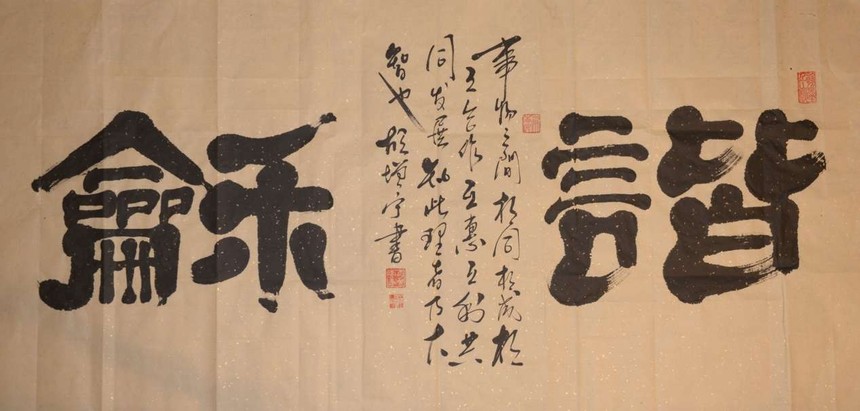 諧
事物之間相同相成相
互合作互惠互利共
同发展知此理者乃大
智也 胡增宁書
龢